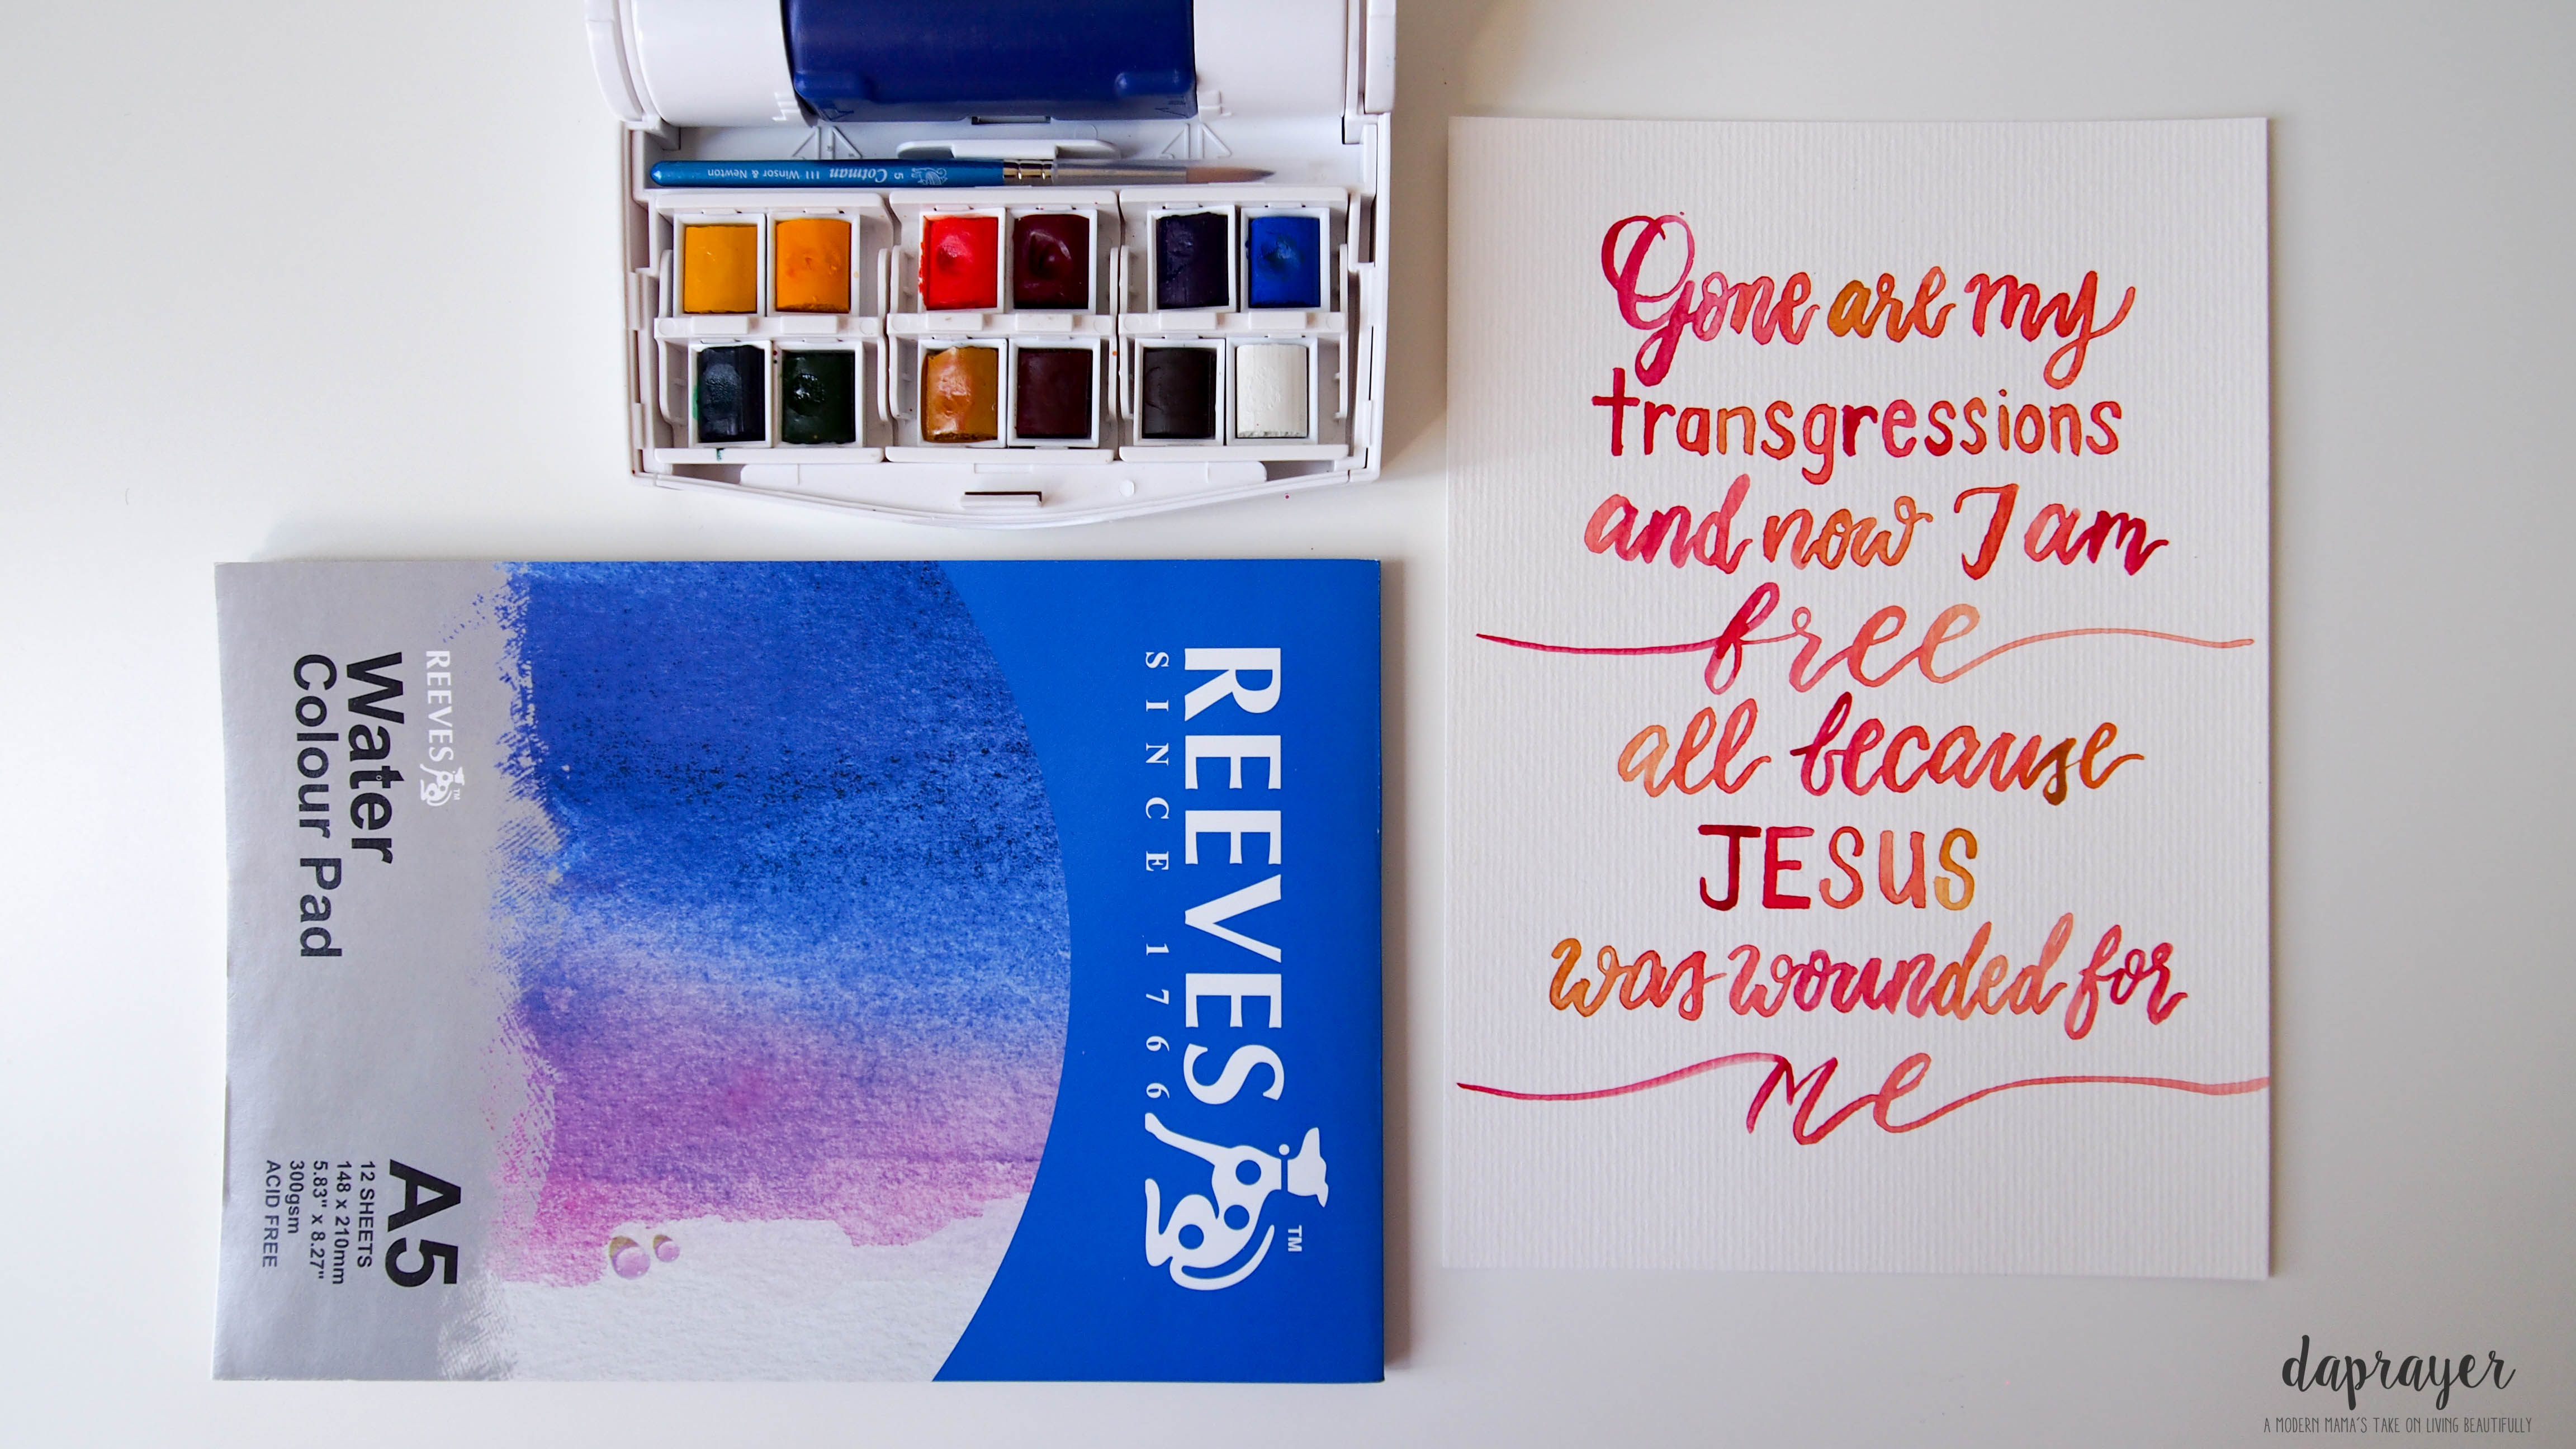 Cotman 111 Winsor & Newton
5
REEVES
SINCE 1766
TM
REEVES
TM
Water
Colour Pad
A5
12 SHEETS
148 x 210mm
5.83" x 8.27"
300gsm
ACID FREE
Gone are my
transgressions
and now I am
free
all because
JESUS
was wounded for
me
daprayer
A MODERN MAMA'S TAKE ON LIVING BEAUTIFULLY